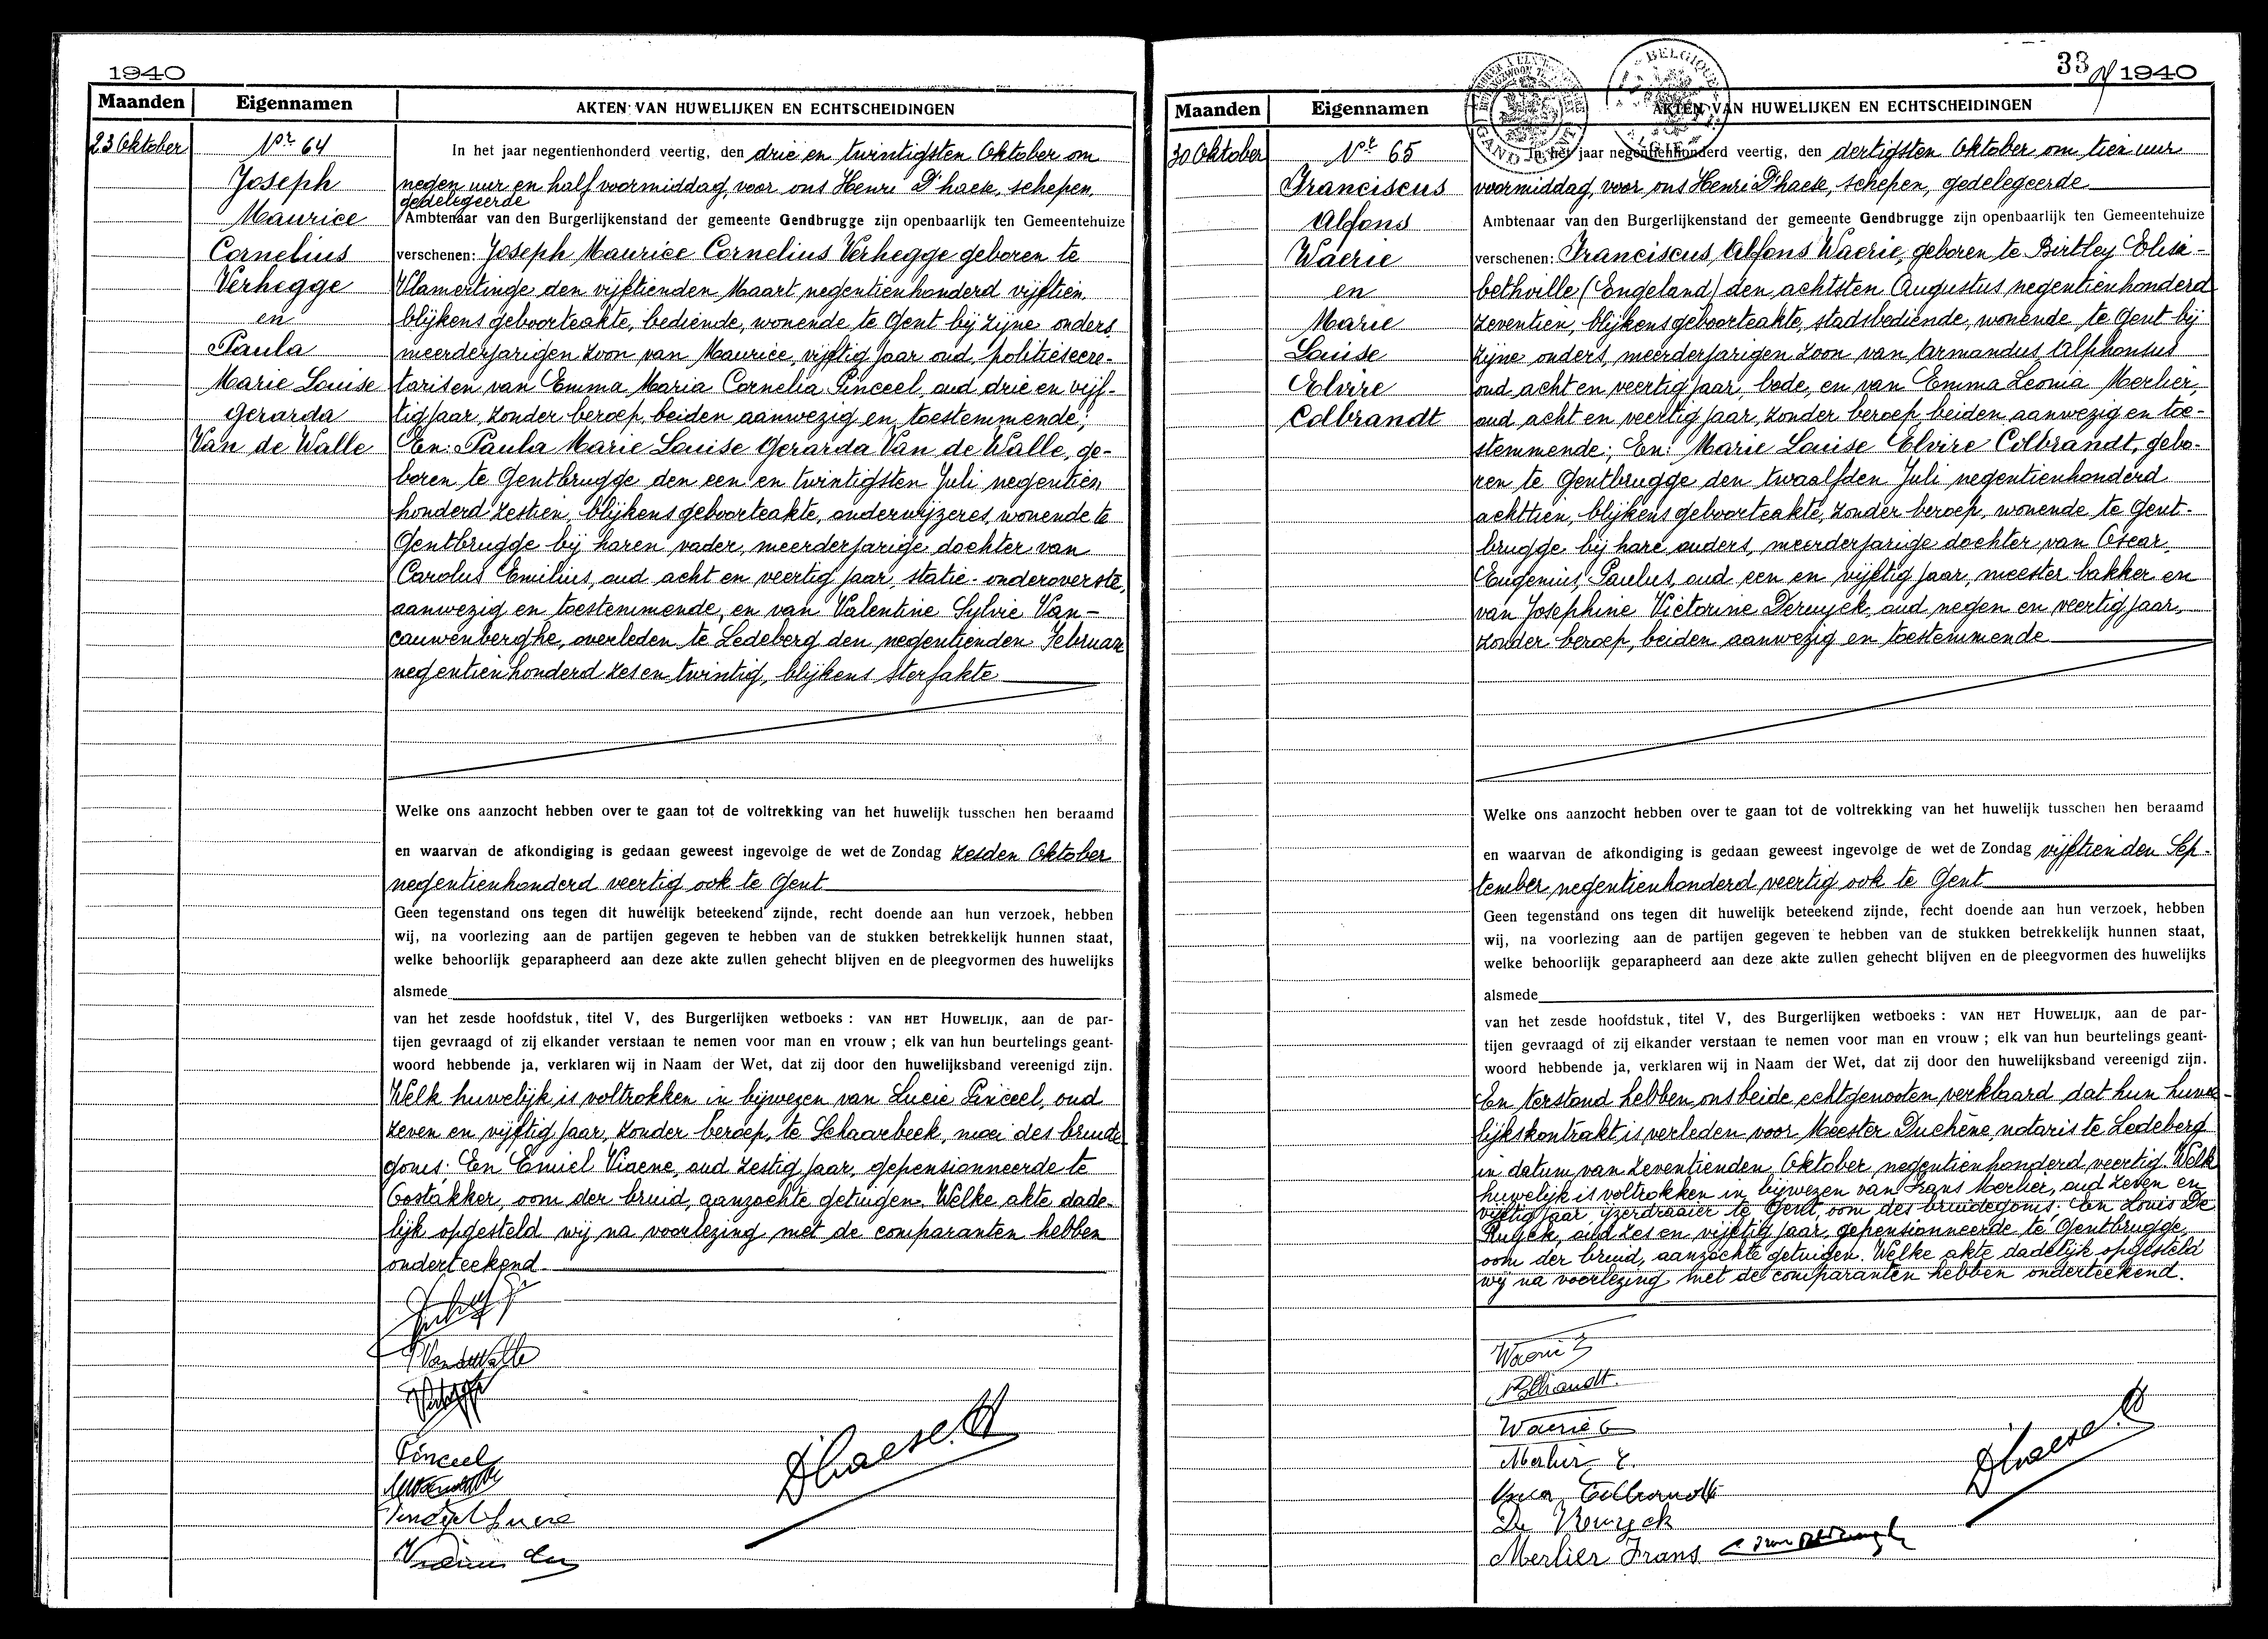 1940
Maanden Eigennamen AKTEN VAN HUWELIJKEN EN ECHTSCHEIDINGEN
23 Oktober
Nr 64
Joseph
Maurice
Cornelius
Verhegge
en
Paula
Marie Louise
Gerarda
Van de Walle
In het jaar negentienhonderd veertig, den drie en twintigsten Oktober om
negen uur en half voormiddag, voor ons Henri D'haese, schepen,
gedelegeerde
Ambtenaar van den Burgerlijkenstand der gemeente Gendbrugge zijn openbaarlijk ten Gemeentehuize
verschenen: Joseph Maurice Cornelius Verhegge geboren te
Vlamertinge, den vijftienden Maart negentienhonderd vijftien,
blijkens geboorteakte, bediende, wonende te Gent bij zijne ouders,
meerderjarigen zoon van Maurice, vijftig jaar oud, politiesecre-
tarisen van Emma Maria Cornelia Pinceel, oud drie en vijf-
tig jaar, zonder beroep, beiden aanwezig en toestemmende;
En: Paula Marie Louise Gerarda Van de Walle, ge-
boren te Gentbrugge den een en twintigsten Juli negentien
honderd zestien, blijkens geboorteakte, onderwijzeres, wonende te
Gentbrugge bij haren vader, meerderjarige dochter van
Carolus Emilius, oud acht en veertig jaar, statie-onderoverste,
aanwezig en toestemmende, en van Valentine Sylvie Van-
cauwenberghe, overleden te Ledeberg den negentienden Februari
negentienhonderd zesen twintig, blijkens sterfakte
Welke ons aanzocht hebben over te gaan tot de voltrekking van het huwelijk tusschen hen beraamd
en waarvan de afkondiging is gedaan geweest ingevolge de wet de Zondag zesden Oktober
negentienhonderd veertig ook te Gent
Geen tegenstand ons tegen dit huwelijk beteekend zijnde, recht doende aan hun verzoek, hebben
wij, na voorlezing aan de partijen gegeven te hebben van de stukken betrekkelijk hunnen staat,
welke behoorlijk geparapheerd aan deze akte zullen gehecht blijven en de pleegvormen des huwelijks
alsmede
van het zesde hoofdstuk, titel V, des Burgerlijken wetboeks : VAN HET HUWELIJK, aan de par-
tijen gevraagd of zij elkander verstaan te nemen voor man en vrouw ; elk van hun beurtelings geant-
woord hebbende ja, verklaren wij in Naam der Wet, dat zij door den huwelijksband vereenigd zijn.
Welk huwelijk is voltrokken in bijwezen van Lucie Pinceel, oud
zeven en vijftig jaar, zonder beroep, te Schaarbeek, moei des bruide
goms; En Emiel Viaene, oud zestig jaar, gepensionneerde te
Oostakker, oom der bruid, aanzochte getuigen. Welke akte dade-
lijk opgesteld wij na voorlezing met de comparanten hebben
onderteekend
Pinceel
D'haese. H
33 1940
Maanden Eigennamen AKTEN VAN HUWELIJKEN EN ECHTSCHEIDINGEN
BELGIQUE
GAND
30 Oktober
Nr 65
Franciscus
Alfons
Waerie
en
Marie
Louise
Elvire
Colbrandt
In het jaar negentienhonderd veertig, den dertigsten Oktober om tien uur
voormiddag, voor ons Henri D'haese, schepen, gedelegeerde
Ambtenaar van den Burgerlijkenstand der gemeente Gendbrugge zijn openbaarlijk ten Gemeentehuize
verschenen: Franciscus Alfons Waerie, geboren te Birtley Elisa-
bethville (Engeland) den achtsten Augustus negentienhonderd
zeventien, blijkens geboorteakte, stadsbediende, wonende te Gent bij
zijne ouders, meerderjarigen zoon van Armandus Alphonsus
oud acht en veertig jaar, bode, en van Emma Leonia Merlier,
oud acht en veertig jaar, zonder beroep beiden aanwezig en toe-
stemmende; En: Marie Louise Elvire Colbrandt, gebo-
ren te Gentbrugge den twaalfden Juli negentienhonderd
achttien, blijkens geboorteakte, zonder beroep, wonende te Gent-
brugge bij hare ouders, meerderjarige dochter van Oscar,
Eugenius, Paulus, oud een en vijftig jaar, meester bakker en
van Josephine Victorine Deruyck, oud negen en veertig jaar,
zonder beroep, beiden aanwezig en toestemmende
Welke ons aanzocht hebben over te gaan tot de voltrekking van het huwelijk tusschen hen beraamd
en waarvan de afkondiging is gedaan geweest ingevolge de wet de Zondag vijftienden Sep-
tember negentienhonderd veertig ook te Gent
Geen tegenstand ons tegen dit huwelijk beteekend zijnde, recht doende aan hun verzoek, hebben
wij, na voorlezing aan de partijen gegeven te hebben van de stukken betrekkelijk hunnen staat,
welke behoorlijk geparapheerd aan deze akte zullen gehecht blijven en de pleegvormen des huwelijks
alsmede
van het zesde hoofdstuk, titel V, des Burgerlijken wetboeks : VAN HET HUWELIJK, aan de par-
tijen gevraagd of zij elkander verstaan te nemen voor man en vrouw ; elk van hun beurtelings geant-
woord hebbende ja, verklaren wij in Naam der Wet, dat zij door den huwelijksband vereenigd zijn.
En terstond hebben ons beide echtgenooten verklaard dat hun huwe-
lijkskontrakt is verleden voor Meester Duchêne, notaris te Ledeberg
in datum van zeventienden Oktober negentienhonderd veertig. Welk
huwelijk is voltrokken in bijwezen van Frans Merlier, oud zeven en
vijftig jaar ijzerdraaier te Gent, oom des bruidegoms; En Louis De
Ruyck, oud zes en vijftig jaar, gepensionneerde te Gentbrugge,
oom der bruid, aanzochte getuigen. Welke akte dadelijk opgesteld
wij na voorlezing met de comparanten hebben onderteekend.
Waerie
Colbrandt.
Waerie
Merlier E.
Colbrandt
De Ruyck
Merlier Frans
D'haese. H